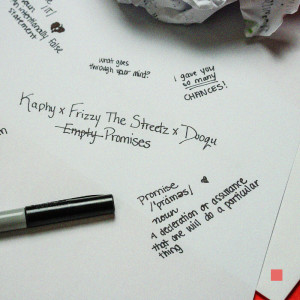 /laɪ/
noun
An intentionally false
statement
what goes
through your mind?
I gave you
so many
CHANCES!
Kaphy x Frizzy The Streetz x Duoqu
Empty Promises
Promise
/'prɑməs/
noun
A decleration or assurance
that one will do a particular
thing